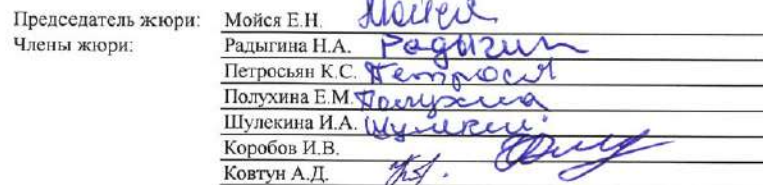 Председатель жюри: Мойся Е.Н. Мойся
Члены жюри: Радыгина Н.А. Радыгин
Петросьян К.С. Петросян
Полухина Е.М. Полухина
Шулекина И.А. Шулекин
Коробов И.В.
Ковтун А.Д.